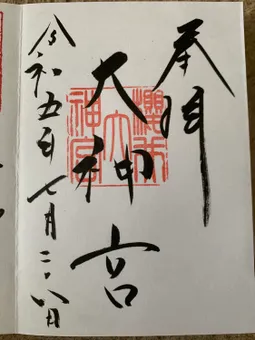 奉拝
大神宮
令和五年七月二十八日
大
神宮